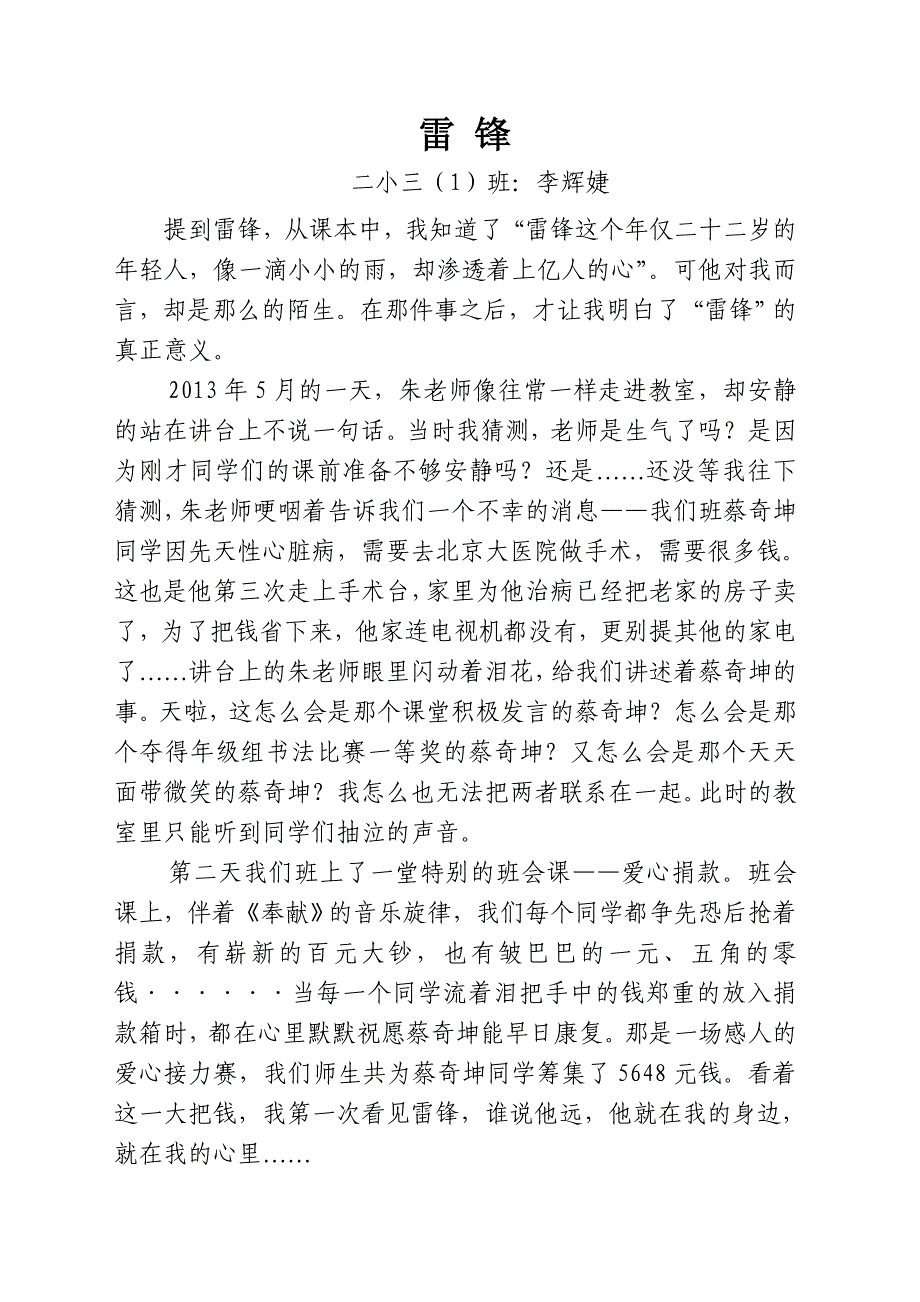 雷 锋
二小三（1）班：李辉婕
提到雷锋，从课本中，我知道了“雷锋这个年仅二十二岁的
年轻人，像一滴小小的雨，却渗透着上亿人的心”。可他对我而
言，却是那么的陌生。在那件事之后，才让我明白了“雷锋”的
真正意义。
2013年5月的一天，朱老师像往常一样走进教室，却安静
的站在讲台上不说一句话。当时我猜测，老师是生气了吗？是因
为刚才同学们的课前准备不够安静吗？还是……还没等我往下
猜测，朱老师哽咽着告诉我们一个不幸的消息——我们班蔡奇坤
同学因先天性心脏病，需要去北京大医院做手术，需要很多钱。
这也是他第三次走上手术台，家里为他治病已经把老家的房子卖
了，为了把钱省下来，他家连电视机都没有，更别提其他的家电
了……讲台上的朱老师眼里闪动着泪花，给我们讲述着蔡奇坤的
事。天啦，这怎么会是那个课堂积极发言的蔡奇坤？怎么会是那
个夺得年级组书法比赛一等奖的蔡奇坤？又怎么会是那个天天
面带微笑的蔡奇坤？我怎么也无法把两者联系在一起。此时的教
室里只能听到同学们抽泣的声音。
第二天我们班上了一堂特别的班会课——爱心捐款。班会
课上，伴着《奉献》的音乐旋律，我们每个同学都争先恐后抢着
捐款，有崭新的百元大钞，也有皱巴巴的一元、五角的零
钱······当每一个同学流着泪把手中的钱郑重的放入捐
款箱时，都在心里默默祝愿蔡奇坤能早日康复。那是一场感人的
爱心接力赛，我们师生共为蔡奇坤同学筹集了5648元钱。看着
这一大把钱，我第一次看见雷锋，谁说他远，他就在我的身边，
就在我的心里……